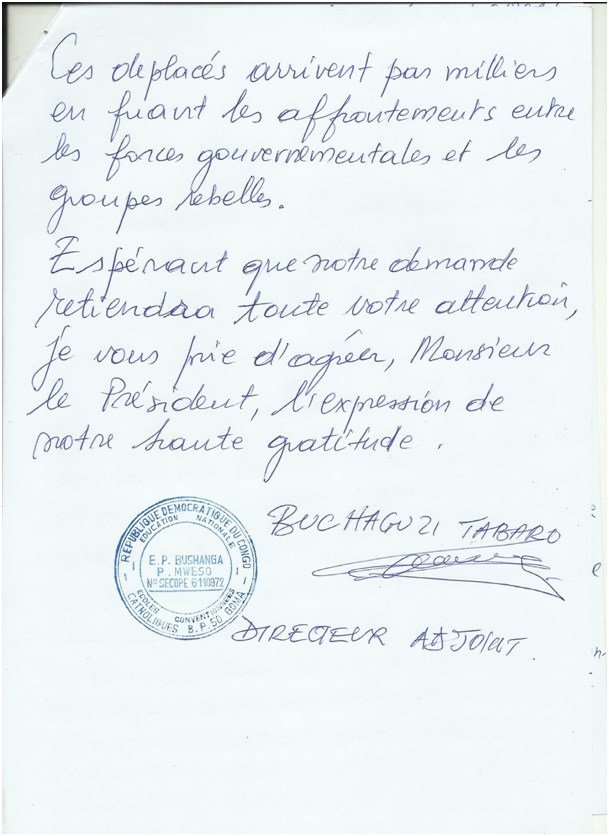 Ces deplacés arrivent par milliers
en fuant les affrontements entre
les forces gouvernementales et les
groupes rebelles.
Espérant que notre demande
retiendra toute votre attention,
je vous prie d'agréer, Monsieur
le Président, l'expression de
notre haute gratitude.
BUCHAGUZI TABARO
REPUBLIQUE DEMOCRATIQUE DU CONGO
EDUCATION NATIONALE
E.P. BUSHANGA
P. MWESO
N° SECOPE 6110972
ECOLES CONVENTIONNEES
CATHOLIQUES B.P. 50 GOMA
DIRECTEUR ADJOINT.